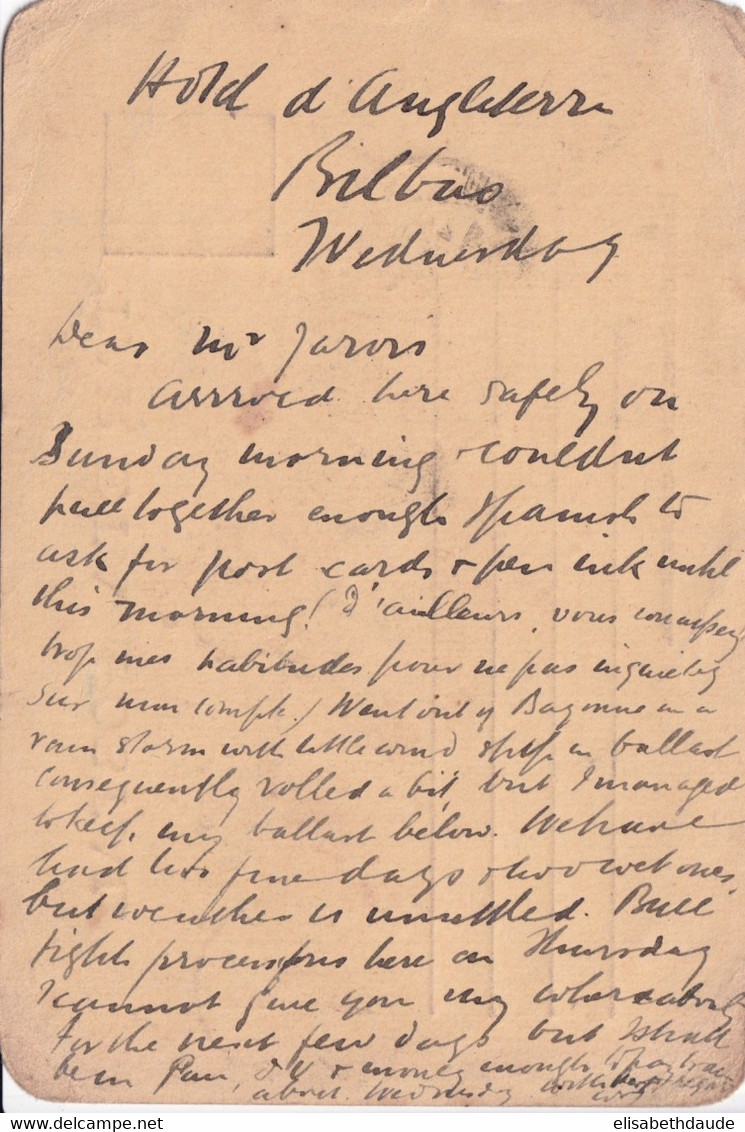 Hotel d'Angleterre
Bilbao
Wednesday
Dear Mr Jarvis
Arrived here safely on
Sunday morning & couldnt
pull together enough Spanish to
ask for post cards & pen ink until
this morning! (D'ailleurs, vous connaissez
trop mes habitudes pour ne pas inquieter
sur mon compte.) Went out of Bayonne in a
rain storm with little wind ship in ballast
consequently rolled a bit, but I managed
to keep my ballast below. We have
had two fine days & two wet ones,
but weather is unsettled. Bull
fight processions here on Thursday
I cannot give you my whereabouts
for the next few days but I shall
be in Pau, D.V. & money enough to pay train
about Wednesday with